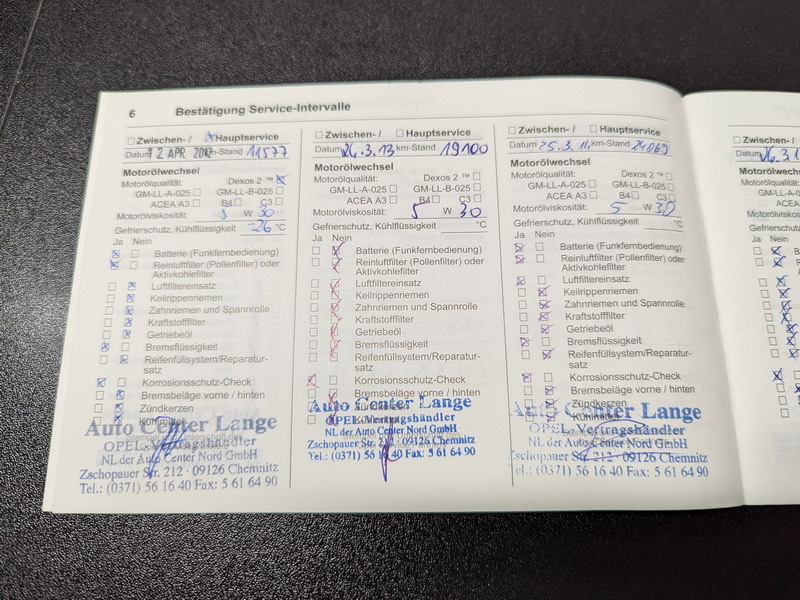 6 Bestätigung Service-Intervalle
Zwischen-/ Hauptservice
Datum 12 APR. km-Stand 11577
Motorölwechsel
Motorölqualität: Dexos 2 ™
GM-LL-A-025 GM-LL-B-025
ACEA A3 B4 C3
Motorölviskosität: 5 W 30
Gefrierschutz, Kühlflüssigkeit -26 °C
Ja Nein
Batterie (Funkfernbedienung)
Reinluftfilter (Pollenfilter) oder
Aktivkohlefilter
Luftfiltereinsatz
Keilrippenriemen
Zahnriemen und Spannrolle
Kraftstofffilter
Getriebeöl
Bremsflüssigkeit
Reifenfüllsystem/Reparatur-
satz
Korrosionsschutz-Check
Bremsbeläge vorne / hinten
Zündkerzen
Kühlmittel
Auto Center Lange
OPEL-Vertragshändler
NL der Auto Center Nord GmbH
Zschopauer Str. 212 · 09126 Chemnitz
Tel.: (0371) 56 16 40 Fax: 5 61 64 90
Zwischen-/ Hauptservice
Datum 26.3.13 km-Stand 19100
Motorölwechsel
Motorölqualität: Dexos 2 ™
GM-LL-A-025 GM-LL-B-025
ACEA A3 B4 C3
Motorölviskosität: 5 W 30
Gefrierschutz, Kühlflüssigkeit °C
Ja Nein
Batterie (Funkfernbedienung)
Reinluftfilter (Pollenfilter) oder
Aktivkohlefilter
Luftfiltereinsatz
Keilrippenriemen
Zahnriemen und Spannrolle
Kraftstofffilter
Getriebeöl
Bremsflüssigkeit
Reifenfüllsystem/Reparatur-
satz
Korrosionsschutz-Check
Bremsbeläge vorne / hinten
Zündkerzen
Auto Center Lange
OPEL-Vertragshändler
NL der Auto Center Nord GmbH
Zschopauer Str. 212 · 09126 Chemnitz
Tel.: (0371) 56 16 40 Fax: 5 61 64 90
Zwischen-/ Hauptservice
Datum 25.3. km-Stand
Motorölwechsel
Motorölqualität: Dexos 2 ™
GM-LL-A-025 GM-LL-B-025
ACEA A3 B4 C3
Motorölviskosität: 5 W 30
Gefrierschutz, Kühlflüssigkeit °C
Ja Nein
Batterie (Funkfernbedienung)
Reinluftfilter (Pollenfilter) oder
Aktivkohlefilter
Luftfiltereinsatz
Keilrippenriemen
Zahnriemen und Spannrolle
Kraftstofffilter
Getriebeöl
Bremsflüssigkeit
Reifenfüllsystem/Reparatur-
satz
Korrosionsschutz-Check
Bremsbeläge vorne / hinten
Zündkerzen
Kühlmittel
Auto Center Lange
OPEL-Vertragshändler
NL der Auto Center Nord GmbH
Zschopauer Str. 212 · 09126 Chemnitz
Tel.: (0371) 56 16 40 Fax: 5 61 64 90
Ja Nein